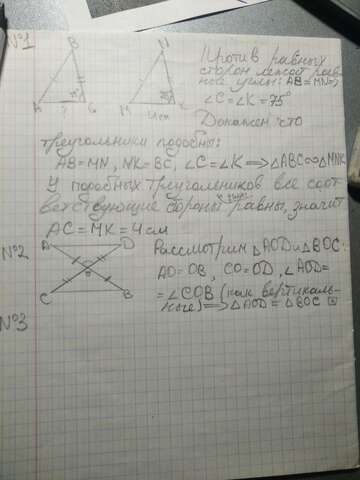 №1
B
N
A
?
75°
C
M
4см
K
Против равных
сторон лежат рав-
ные углы: AB=MN⇒
∠C=∠K=75°
Докажем что
треугольники подобны:
AB=MN, NK=BC, ∠C=∠K⟹△ABC∞△MNK
У подобных треугольников все соот
ветствующие стороны равны, значит
AC=MK=4см
№2
A
D
O
C
B
Рассмотрим △AOD и △BOC:
AO=OB, CO=OD, ∠AOD=
=∠COB (как вертикаль-
ные)⟹△AOD=△BOC
№3